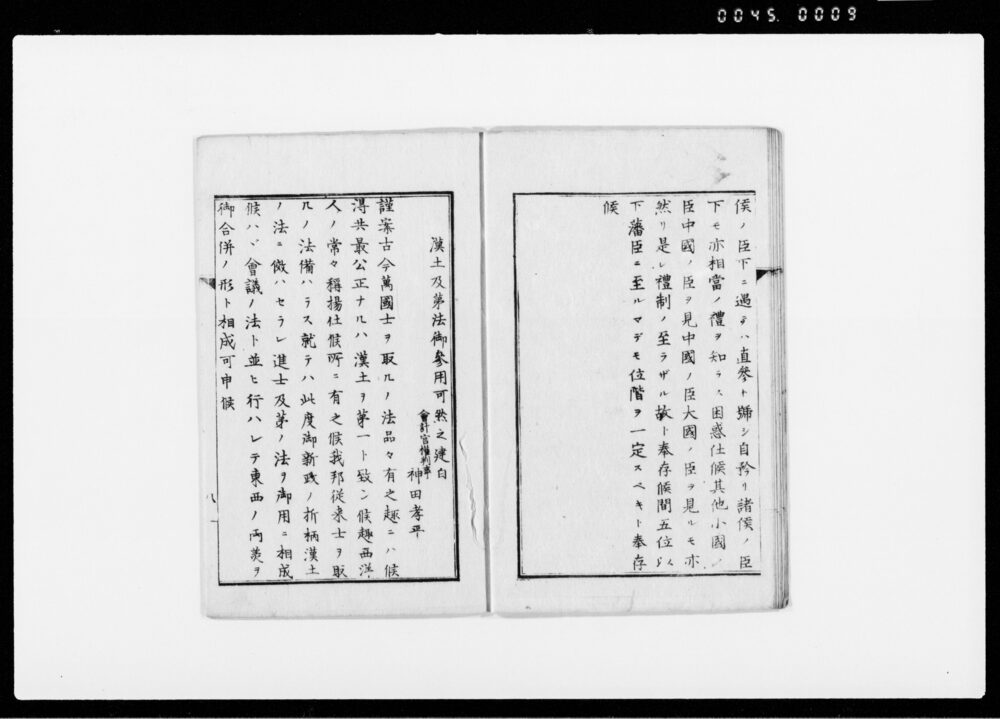 0045. 0009
侯ノ臣下ニ過テハ直參ト號シ自矜リ諸侯ノ臣
下モ亦相當ノ禮ヲ知ラス困惑仕候其他小國ノ
臣中國ノ臣ヲ見中國ノ臣大國ノ臣ヲ見ルモ亦
然リ是レ禮制ノ至ラザル故ト奉存候間五位以
下藩臣ニ至ルマデモ位階ヲ一定スベキト奉存
候
漢土及第法御參用可然之建白
會計官權判事
神田孝平
謹案古今萬國士ヲ取ルノ法品々有之趣ニハ候
得共最公正ナルハ漢土ヲ第一ト致シ候趣西洋
人ノ常々稱揚仕候所ニ有之候我邦従来士ヲ取
ルノ法備ハラス就テハ此度御新政ノ折柄漢土
ノ法ニ倣ハセラレ進士及第ノ法ヲ御用ニ相成
候ハヾ會議ノ法ト並ヒ行ハレテ東西ノ両美ヲ
御合併ノ形ト相成可申候